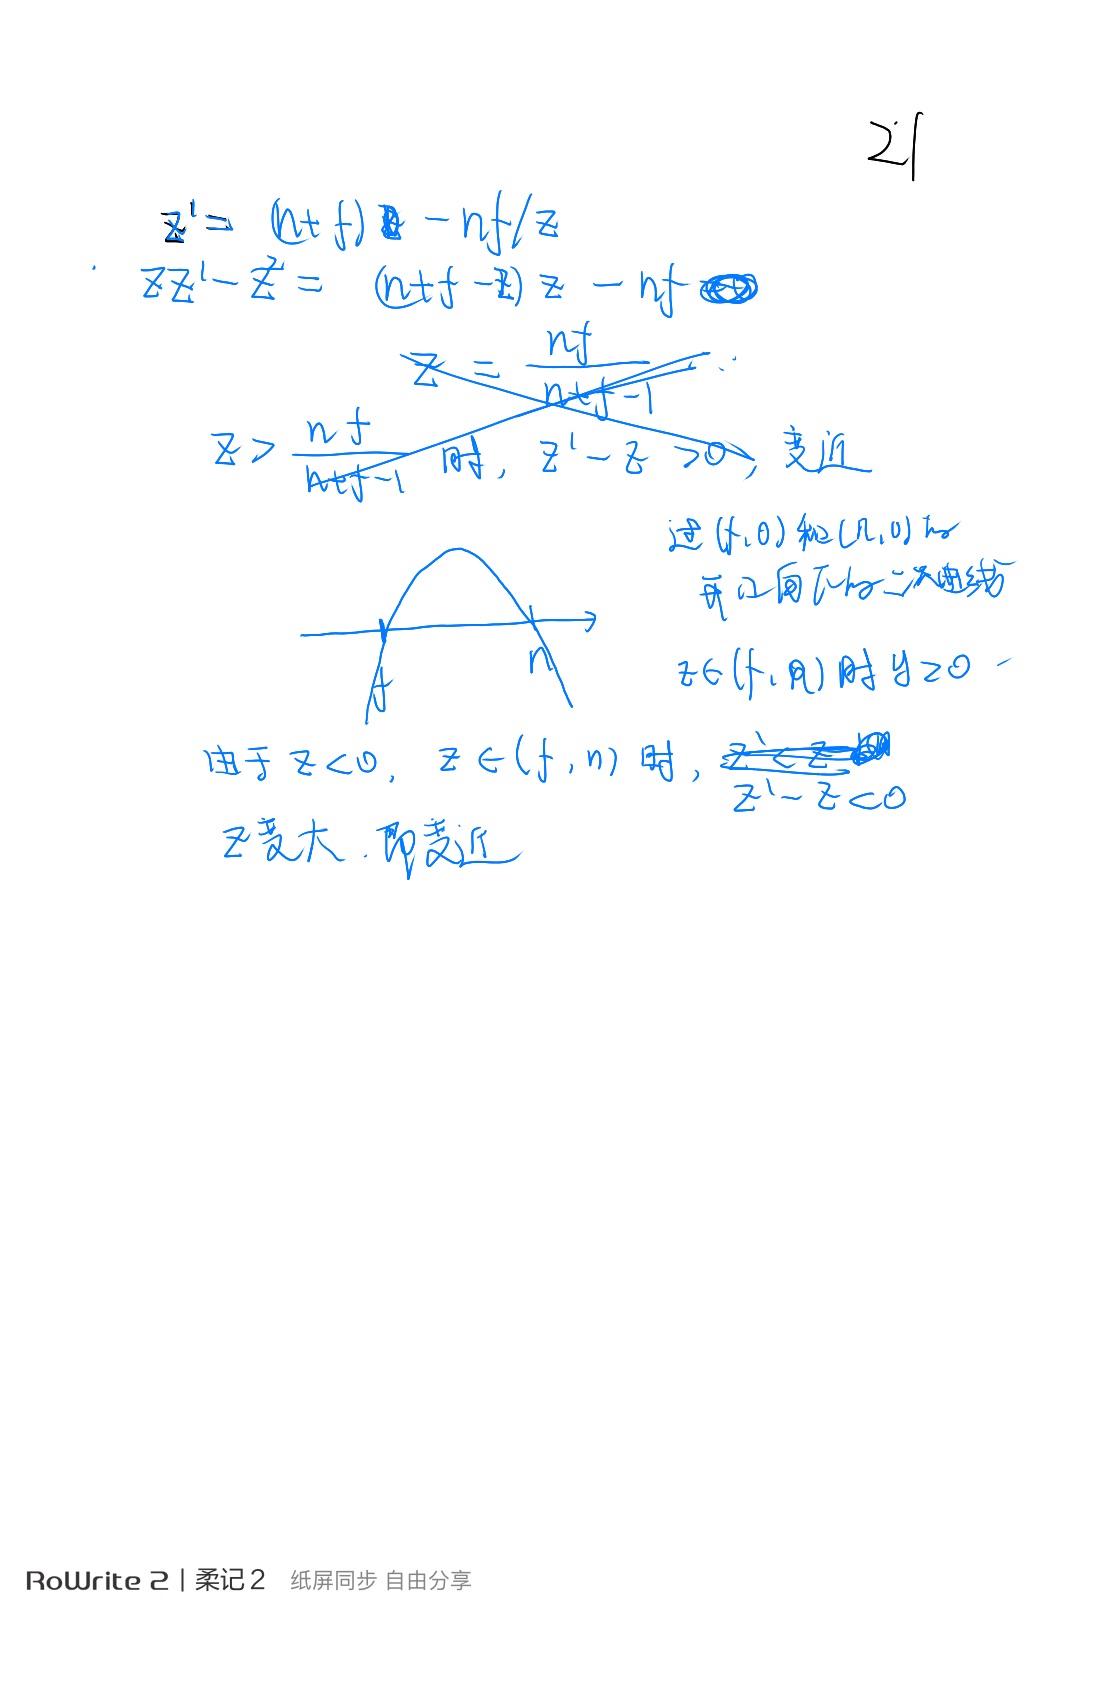 21
z' = (n+f) - nf/z
zz' - z² = (n+f-z)z - nf
z = nf/(n+f-1)
z > nf/(n+f-1) 时, z'-z>0, 变近
过(f,0)和(n,0)的
开口向下的二次曲线
f n
z∈(f,n)时y>0
由于z<0, z∈(f,n)时, z'<z
z'-z<0
z变大.即变近
RoWrite 2 | 柔记2 纸屏同步 自由分享